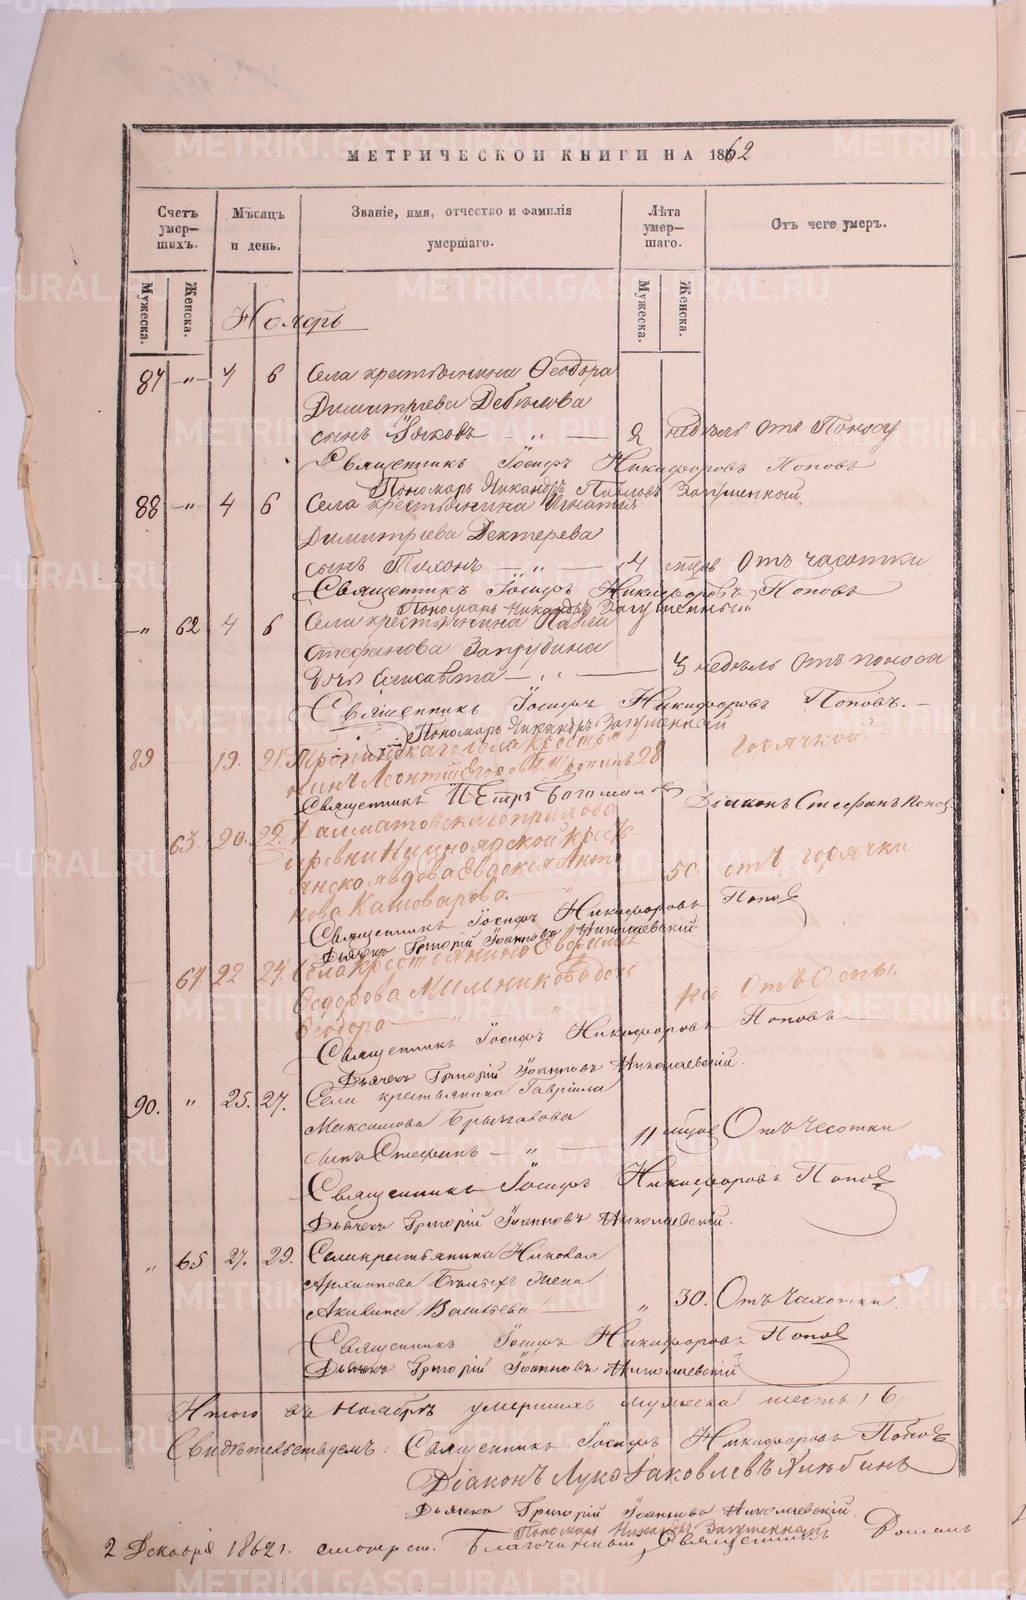 МЕТРИЧЕСКОЙ КНИГИ НА 1862
Счетъ умер—шихъ.
Мѣсяцъ и день.
Званіе, имя, отчество и фамилія умершаго.
Лѣта умер—шаго.
Отъ чего умеръ.
Мужеска.
Женска.
Мужеска.
Женска.
Ноябрь
87 —"— 4 6 Села крестьянина Ѳеодора
Димитріева Дебелова
сынъ Іяковъ — " — 2 недѣль отъ Поносу
Священникъ Іосифъ Никифоровъ Поповъ
Пономарь Никандръ Павловъ
88 —"— 4 6 Села крестьянина Игнатія
Димитріева Дектерева
сынъ Тихонъ — " — 4 отъ чахотки
Священникъ Іосифъ Никифоровъ Поповъ
Пономарь Никандръ
—" 62 4 6 Села крестьянина Павла
Стефанова
дочь Елисавета — " — 3 недѣль отъ поноса
Священникъ Іосифъ Никифоровъ Поповъ. —
Пономарь Никандръ
89 19. 21. села крестья
нинъ Леонтій Егоровъ 28 горячкой
Священникъ Петръ Діаконъ Стефанъ Поповъ
63. 20. 22. Далматовскаго прихода
деревни Красноярской кресть
янская вдова Евдокія Анто
нова Кашеварова. — " 50. отъ горячки
Священникъ Іосифъ Никифоровъ Поповъ
Дьячекъ Григорій Іоанновъ Николаевскій.
64 22 24. Села крестьянина
Ѳедорова Мильникова дочь
Ѳеодора — " — " годъ Отъ Оспы.
Священникъ Іосифъ Никифоровъ Поповъ
Дьячекъ Григорій Іоанновъ Николаевскій.
90. " 25. 27. Села крестьянина Гавріила
Максимова
сынъ Стефанъ — " — 11 Отъ Чесотки
Священникъ Іосифъ Никифоровъ Поповъ
Дьячекъ Григорій Іоанновъ Николаевскій.
" 65 27. 29. Села крестьянина Николая
Архиппова Бѣлыхъ жена
Акилина Васильева — " 30. Отъ Чахотки
Священникъ Іосифъ Никифоровъ Поповъ
Дьячекъ Григорій Іоанновъ Николаевскій
Итого въ Ноябрѣ умершихъ мужеска шесть, 6,
Свидѣтельствуемъ: Священникъ Іосифъ Никифоровъ Поповъ
Діаконъ Лука Іаковлевъ
Дьячекъ Григорій Іоанновъ Николаевскій.
Пономарь Никандръ
2 Декабря 1862 г. смотрѣлъ Благочинный Священникъ
METRIKI.GASO-URAL.RU